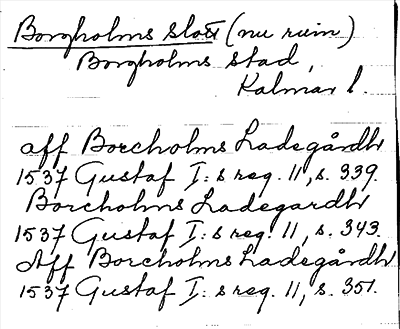 Borgholms slott (nu ruin)
Borgholms stad,
Kalmar l.
aff Borcholms Ladegårdh
1537 Gustaf I:s reg. 11, s. 339.
Borcholms Ladegardh
1537 Gustaf I:s reg. 11, s. 343.
Aff Borcholms Ladegårdh
1537 Gustaf I:s reg. 11, s. 351.